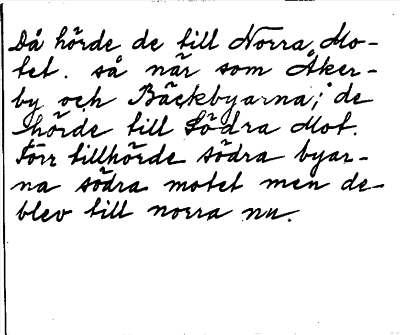 Då hörde de till Norra Mo-
tet. så när som Åker-
by och Bäckbyarna; de
hörde till Södra Mot.
Förr tillhörde södra byar-
na södra motet men de
blev till norra nu.